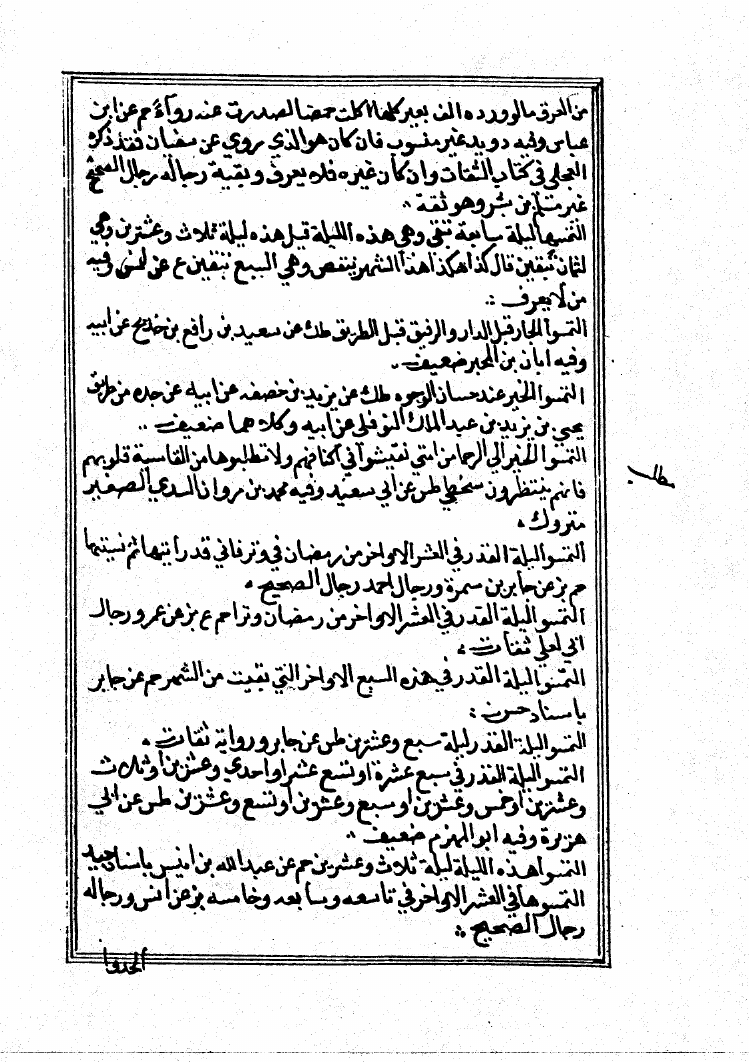 من العرق مالو ورده الف بعير كلها اكلت حمضا لصدرت عنه رواء حم عن ابن
عباس وفيه دويد غير منسوب فان كان هو الذي روي عن سفيان فقد ذكره
العجلي في كتاب الثقات وان كان غيره فلا يعرف وبقية رجاله رجال الصحيح
غير مسلم بن بشر وهو ثقة
التمسها ليلة سابعة تبقى وهي هذه الليلة قبل هذه ليلة ثلاث وعشرين وهي
لثمان تبقين قال كذا هكذا هذا الشهر ينقص وهي السبع تبقين ع عن انس وفيه
من لا يعرف :.
التمسوا الجار قبل الدار والرفيق قبل الطريق طك عن سعيد بن رافع بن خديج عن ابيه
وفيه ابان بن المحبر ضعيف
التمسوا الخير عند حسان الوجوه طك عن يزيد بن خصفه عن ابيه عن جده من طريق
يحيى بن يزيد بن عبد الملك النوفلي عن ابيه وكلاهما ضعيف
التمسوا الخير الي الرحما من امتي تعيشوا في اكنافهم ولا تطلبوها من القاسية قلوبهم
فانهم ينتظرون سخطي طس عن ابي سعيد وفيه محمد بن مروان السدي الصغير
متروك
التمسوا ليلة القدر في العشر الاواخر من رمضان في وتر فاني قد رايتها ثم نسيتها
حم بز عن جابر بن سمرة ورجال احمد رجال الصحيح
التمسوا ليلة القدر في العشر الاواخر من رمضان وترا حم ع بز عن عمر ورجال
ابي يعلى ثقات
التمسوا ليلة القدر في هذه السبع الاواخر التي بقيت من الشهر حم عن جابر
باسناد حسن :
التمسوا ليلة القدر ليلة سبع وعشرين طس عن جابر ورواية ثقات
التمسوا ليلة القدر في سبع عشرة او تسع عشر او احدي وعشرين او ثلاث
وعشرين او خمس وعشرين او سبع وعشرين او تسع وعشرين طس عن ابي
هريرة وفيه ابو المهزم ضعيف
التمسوا هذه الليلة ليلة ثلاث وعشرين حم عن عبد الله بن انيس باسناد جيد
التمسوها في العشر الاواخر في تاسعه وسابعه وخامسه بز عن انس ورجاله
رجال الصحيح :
الحدوا
مطلب